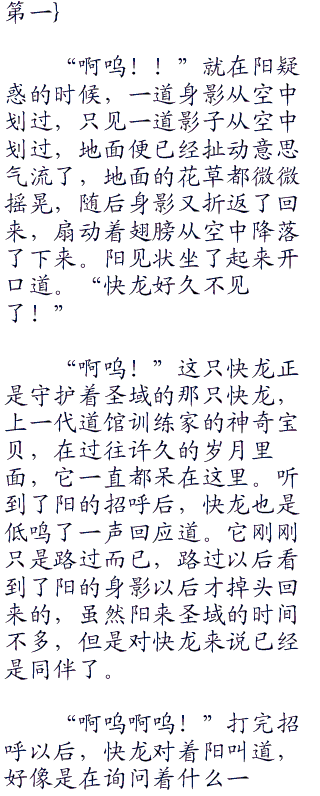 第一}
“啊呜！！”就在阳疑
惑的时候，一道身影从空中
划过，只见一道影子从空中
划过，地面便已经扯动意思
气流了，地面的花草都微微
摇晃，随后身影又折返了回
来，扇动着翅膀从空中降落
了下来。阳见状坐了起来开
口道。“快龙好久不见
了！”
“啊呜！”这只快龙正
是守护着圣域的那只快龙，
上一代道馆训练家的神奇宝
贝，在过往许久的岁月里
面，它一直都呆在这里。听
到了阳的招呼后，快龙也是
低鸣了一声回应道。它刚刚
只是路过而已，路过以后看
到了阳的身影以后才掉头回
来的，虽然阳来圣域的时间
不多，但是对快龙来说已经
是同伴了。
“啊呜啊呜！”打完招
呼以后，快龙对着阳叫道，
好像是在询问着什么一